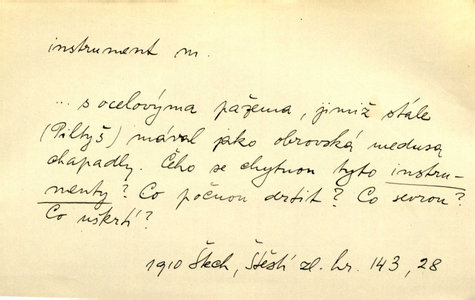 instrument m.
... s ocelovýma pažema, jimiž stále
(Piltyš) mával jako obrovská medusa
chapadly. Čeho se chytnou tyto instru-
menty? Co počnou drtit? Co sevrou?
Co uškrtí?
1910 Štech, Štěstí zl. hr. 143, 28